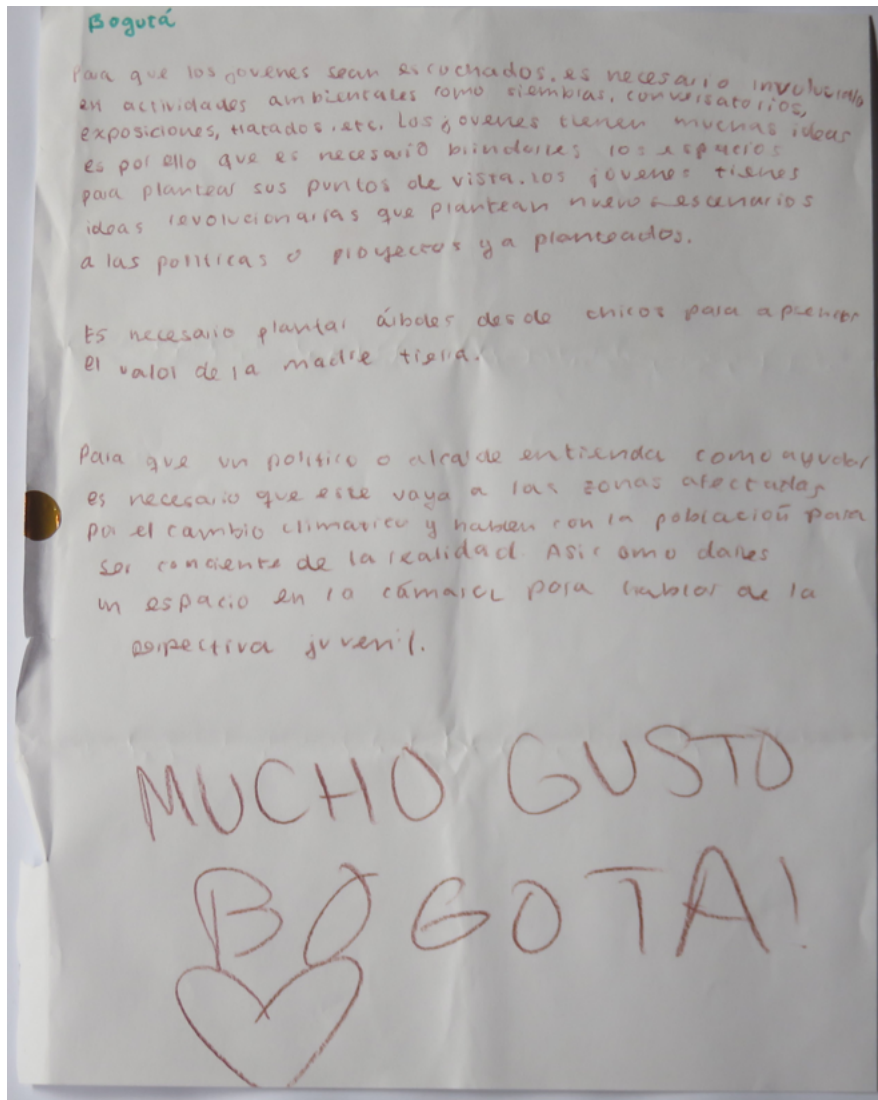 Bogotá
Para que los jovenes sean escuchados, es necesario involucrarlo
en actividades ambientales como siembras, conversatorios,
exposiciones, tratados, etc. Los jovenes tienen muchas ideas
es por ello que es necesario brindarles los espacios
para plantear sus puntos de vista. los jóvenes tienes
ideas revolucionarias que plantean nuevos escenarios
a las politicas o proyectos ya planteados.
Es necesario plantar árboles desde chicos para aprender
el valor de la madre tierra.
Para que un politico o alcalde entienda como ayudar
es necesario que este vaya a las zonas afectadas
por el cambio climatico y hablen con la población para
ser conciente de la realidad. Asi como darles
un espacio en la cámara para hablar de la
perpectiva juvenil.
MUCHO GUSTO
BOGOTA!